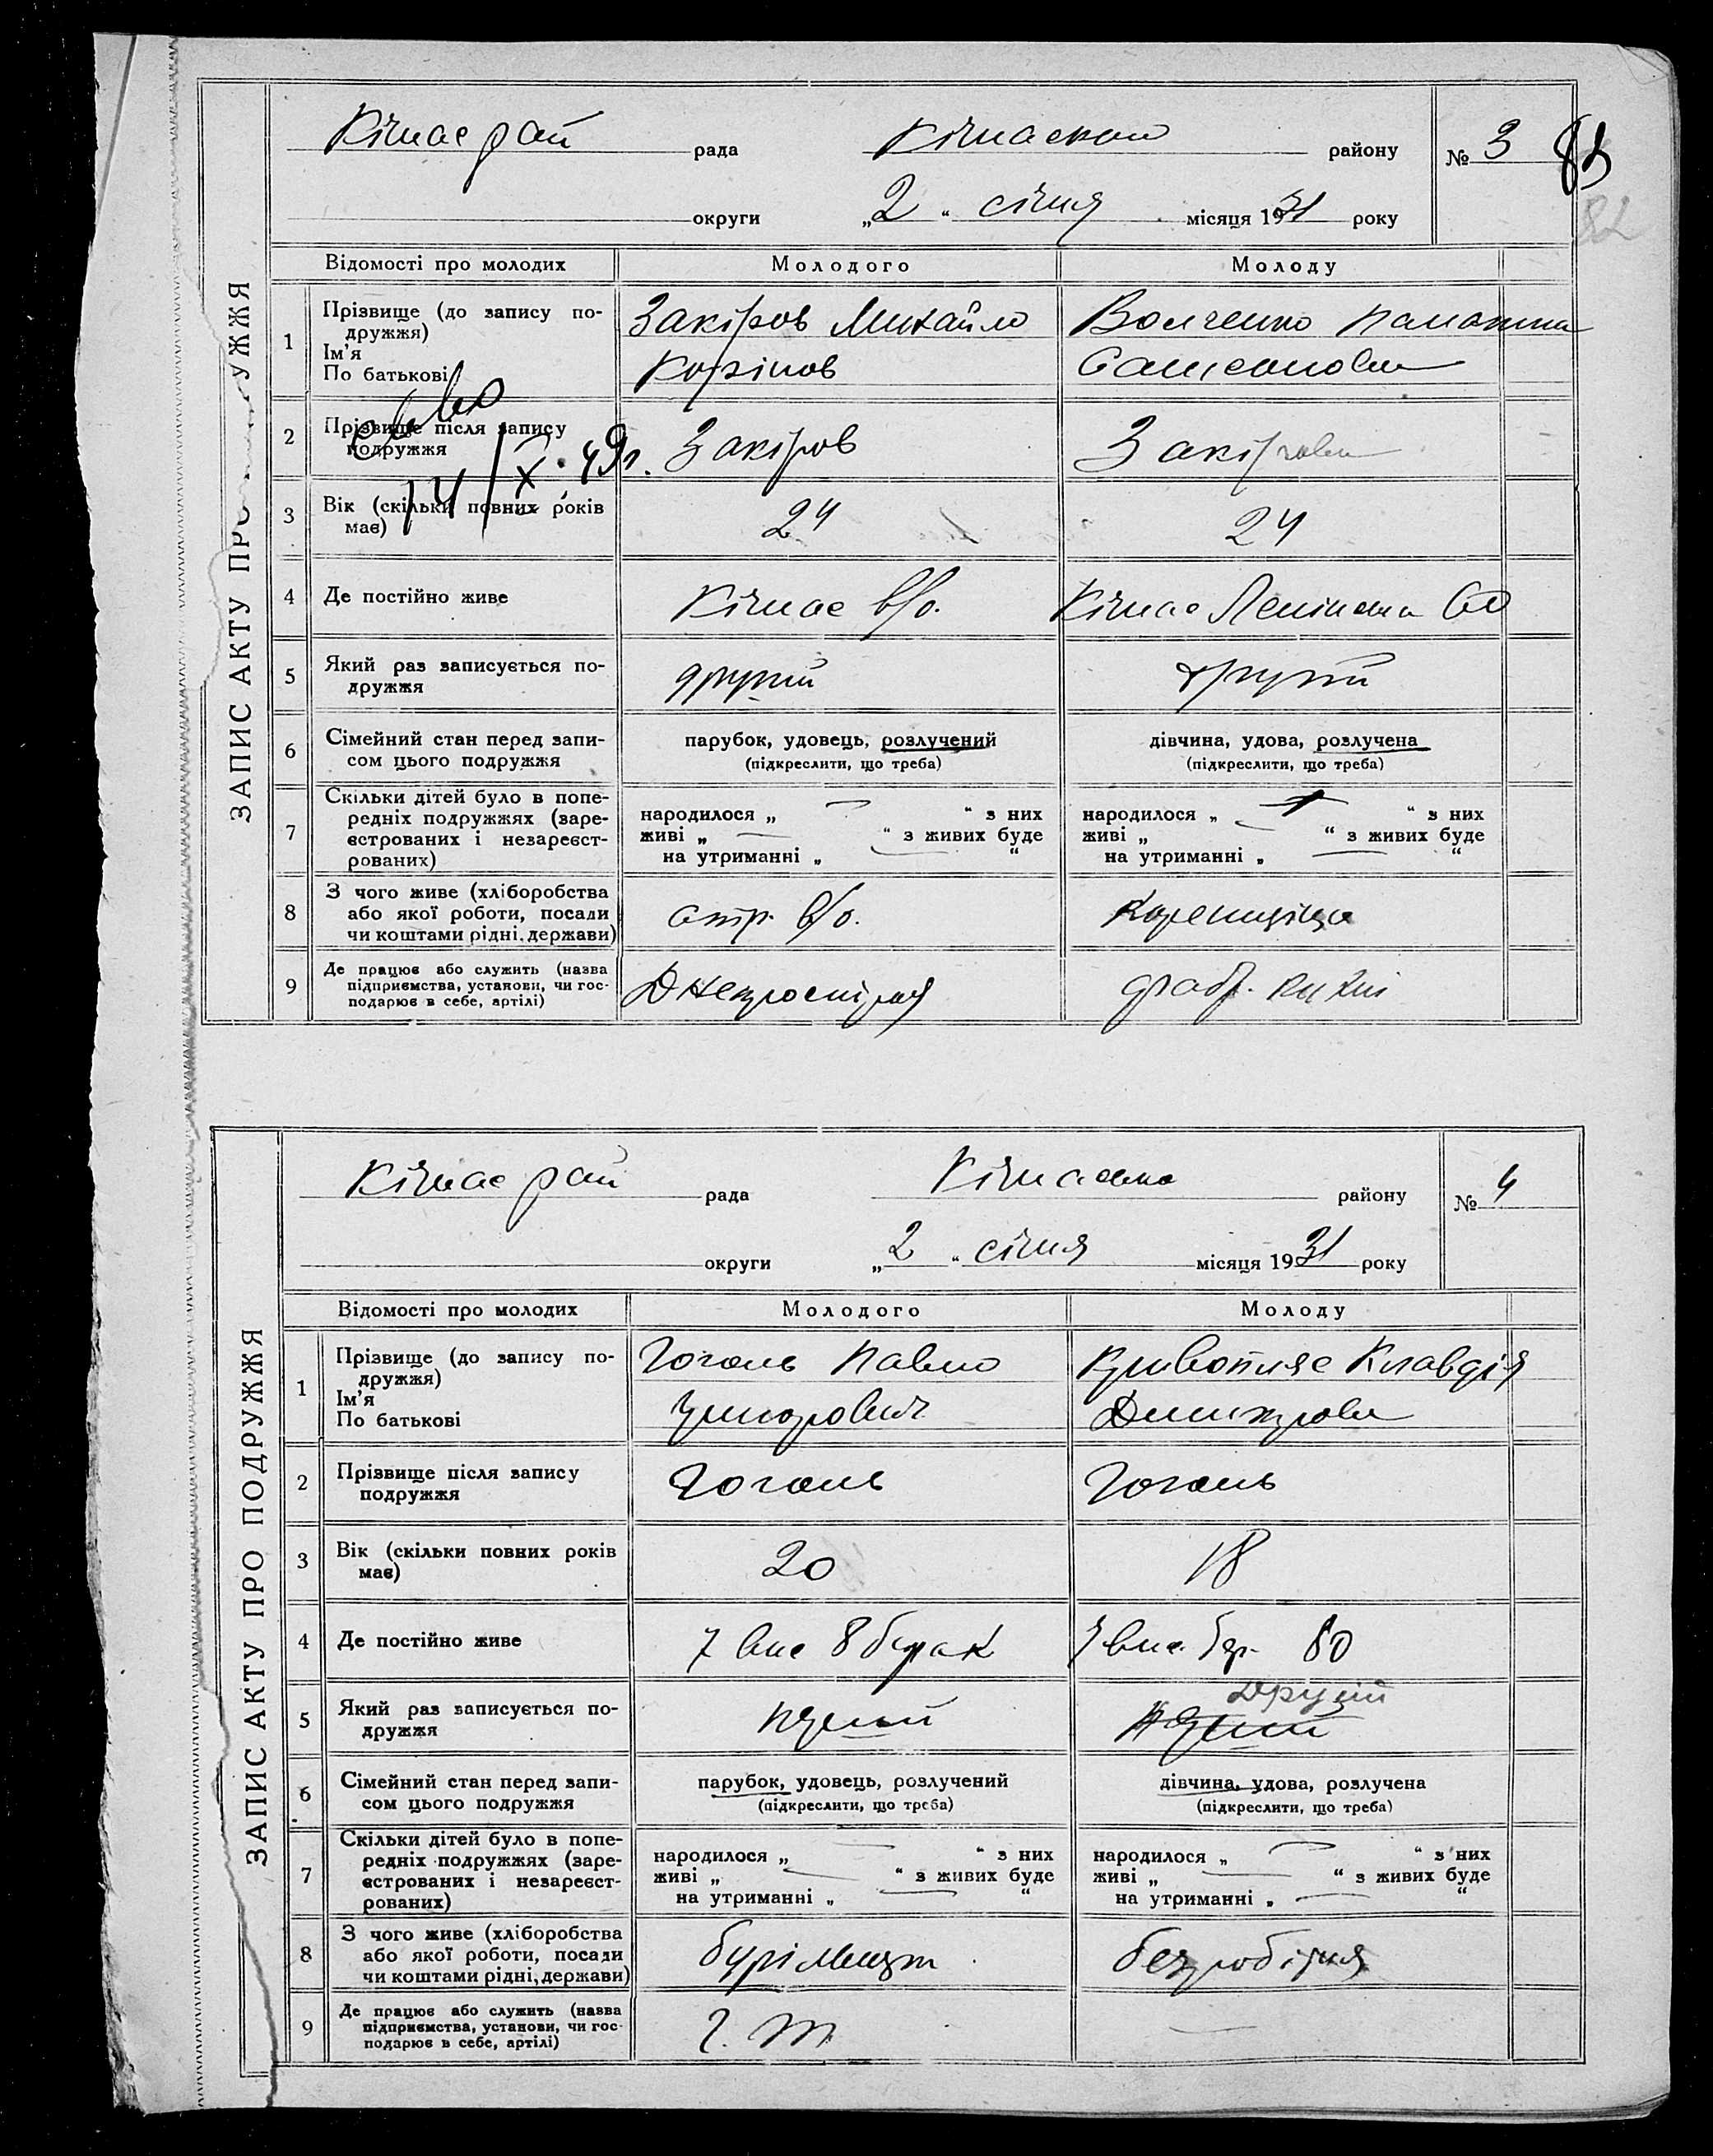 ЗАПИС АКТУ ПРО УЖЖЯ
Кічкас рай рада Кічкаском району № 3 83
82
округи „2“ січня місяця 1931 року
Відомості про молодих Молодого Молоду
1 Прізвище (до запису подружжя) Закіров Михайло Волченко
Ім'я
По батькові Самсоновна
2 Прізвище після запису подружжя Закіров Закірова
14/X. 49г.
3 Вік (скільки повних років має) 24 24
4 Де постійно живе Кічкас в/о. Кічкас Ленінська 60
5 Який раз записується подружжя другий другий
6 Сімейний стан перед записом цього подружжя парубок, удовець, розлучений дівчина, удова, розлучена
(підкреслити, що треба) (підкреслити, що треба)
7 Скільки дітей було в попередніх подружжях (зареєстрованих і незареєстрованих) народилося „ — “ з них народилося „ — “ з них
живі „ — “ з живих буде живі „ — “ з живих буде
на утриманні „ — “ на утриманні „ — “
8 З чого живе (хліборобства або якої роботи, посади чи коштами рідні, держави) стр. в/о.
9 Де працює або служить (назва підприємства, установи, чи господарює в себе, артілі) Днепрострой фабр. кухні
ЗАПИС АКТУ ПРО ПОДРУЖЖЯ
Кічкас рай рада Кічкасько району № 4
округи „2“ січня місяця 1931 року
Відомості про молодих Молодого Молоду
1 Прізвище (до запису подружжя) Гоголь Павло Клавдія
Ім'я
По батькові Дмитрова
2 Прізвище після запису подружжя Гоголь Гоголь
3 Вік (скільки повних років має) 20 18
4 Де постійно живе 7 вис 8 барак 7 вис. бар. 80
5 Який раз записується подружжя перший перший Другий
6 Сімейний стан перед записом цього подружжя парубок, удовець, розлучений дівчина, удова, розлучена
(підкреслити, що треба) (підкреслити, що треба)
7 Скільки дітей було в попередніх подружжях (зареєстрованих і незареєстрованих) народилося „ — “ з них народилося „ — “ з них
живі „ — “ з живих буде живі „ — “ з живих буде
на утриманні „ — “ на утриманні „ — “
8 З чого живе (хліборобства або якої роботи, посади чи коштами рідні, держави) безробітня
9 Де працює або служить (назва підприємства, установи, чи господарює в себе, артілі) —